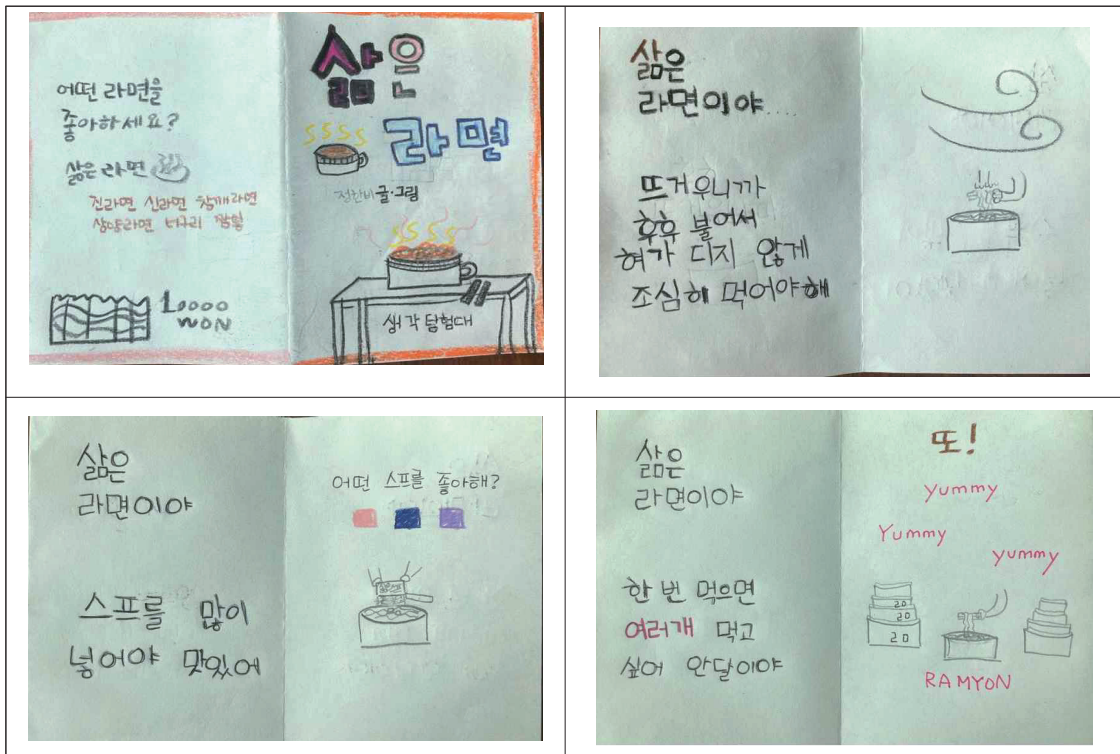 어떤 라면을
좋아하세요?
삶은 라면
진라면 신라면 참깨라면
삼양라면 너구리 짬뽕
10000
WON
삶은
라면
전한비 글·그림
생각탐험대
삶은
라면이야....
뜨거우니까
후후 불어서
혀가 디지 않게
조심해 먹어야해
삶은
라면이야
스프를 많이
넣어야 맛있어
어떤 스프를 좋아해?
삶은
라면이야
한 번 먹으면
여러개 먹고
싶어 안달이야
또!
yummy
Yummy
yummy
20
20
20
RAMYON